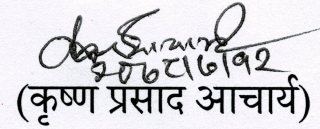 २०७८।७।१२
(कृष्ण प्रसाद आचार्य)